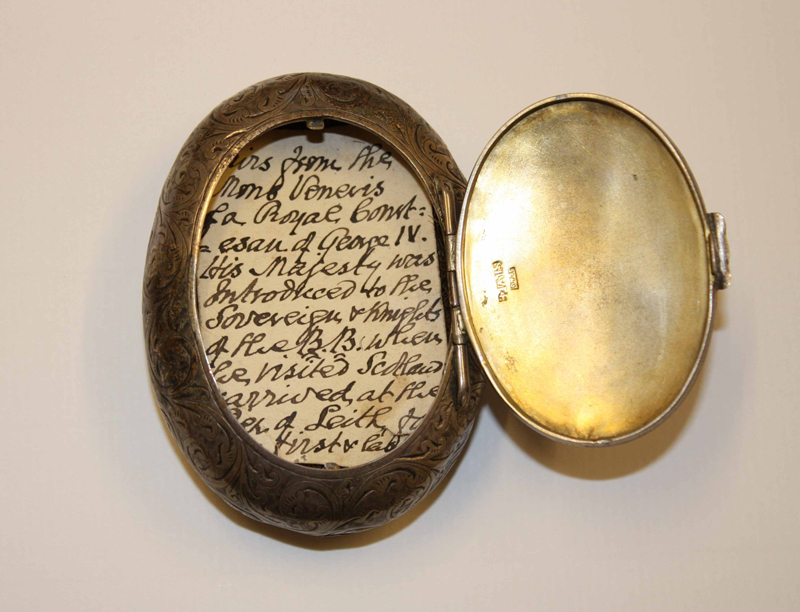 airs from the
Mons Veneris
fa Royal Court:
esan of George IV.
His Majesty was
introduced to the
Sovereign & Knights
of the B.B. when
he visited Scotland
arrived at the
of Leith
first &